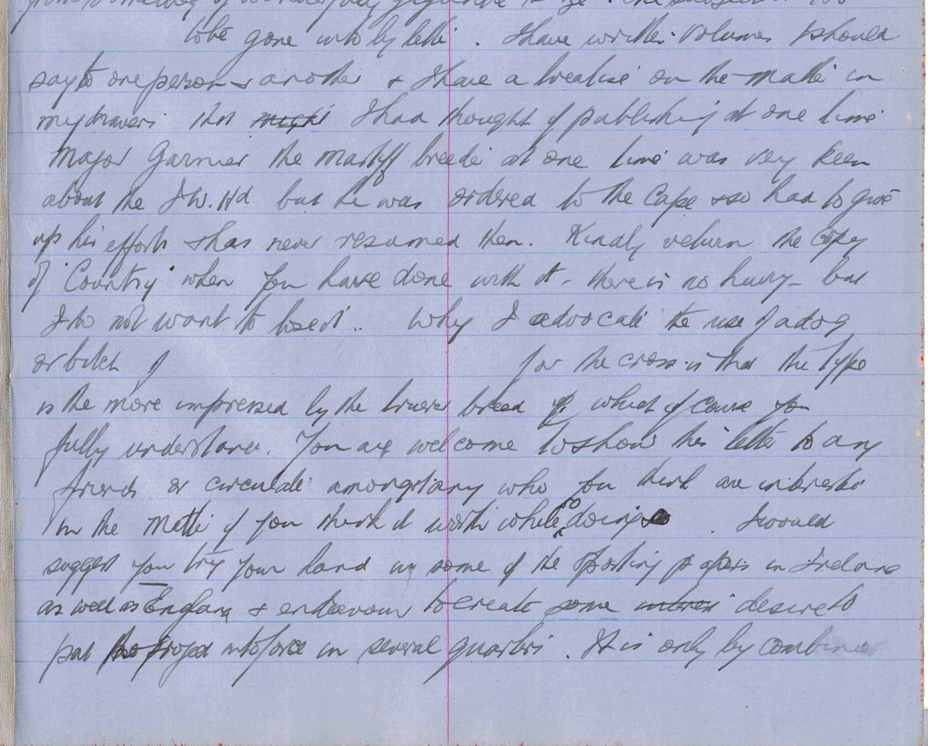 to be gone into by letter. I have written volumes I should
say to one person & another & I have a treatise on the matter in
my drawers that might I had thought of publishing at one time
Major Garnier the mastiff breeder at one time was very keen
about the I.W.Hd but he was ordered to the Cape & so had to give
up his efforts & has never resumed them. Kindly return the copy
of Country when you have done with it - there is no hurry - but
I do not want to lose it.. Why I advocate the use of a dog
or bitch of for the cross is that the type
is the more impressed by the truer breed of which of course you
fully understand. You are welcome to show this letter to any
friends or circulate amongst any who you think are interested
in the matter if you think it worth while so doing. I would
suggest you try your hand in some of the sporting papers in Ireland
as well as England & endeavour to create some interest desire to
put the project into force in several quarters. It is only by combined